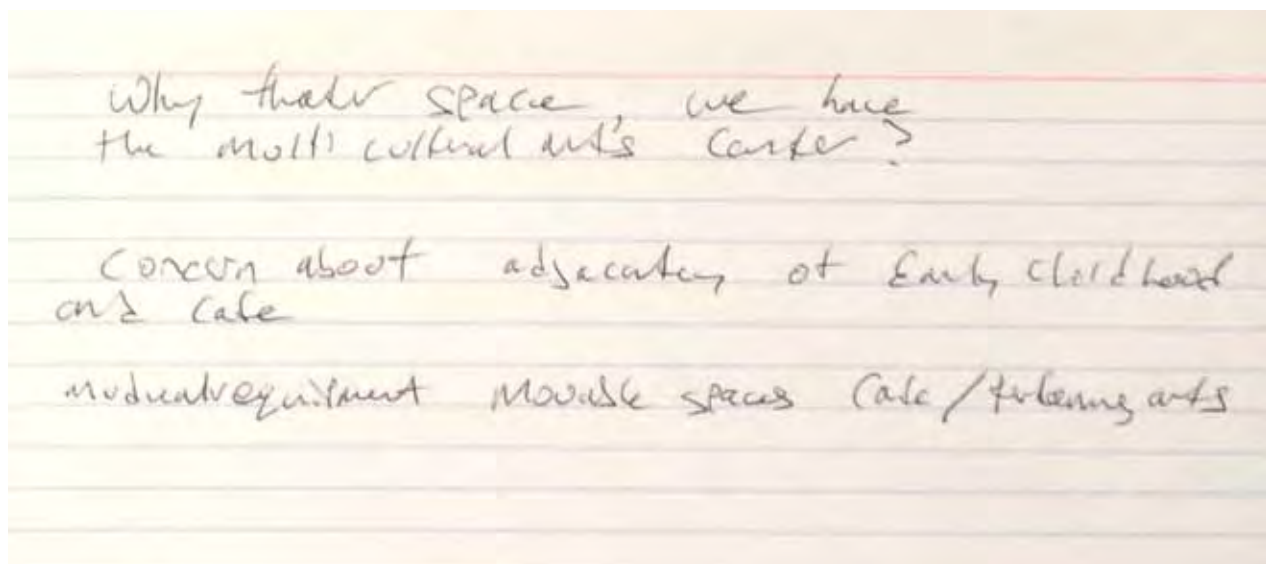 Why theatr space, we have
the multi cultural art's Center?
Concern about adjacentcy of Early Childhood
and Cafe
equipment Movable spaces Cafe / arts